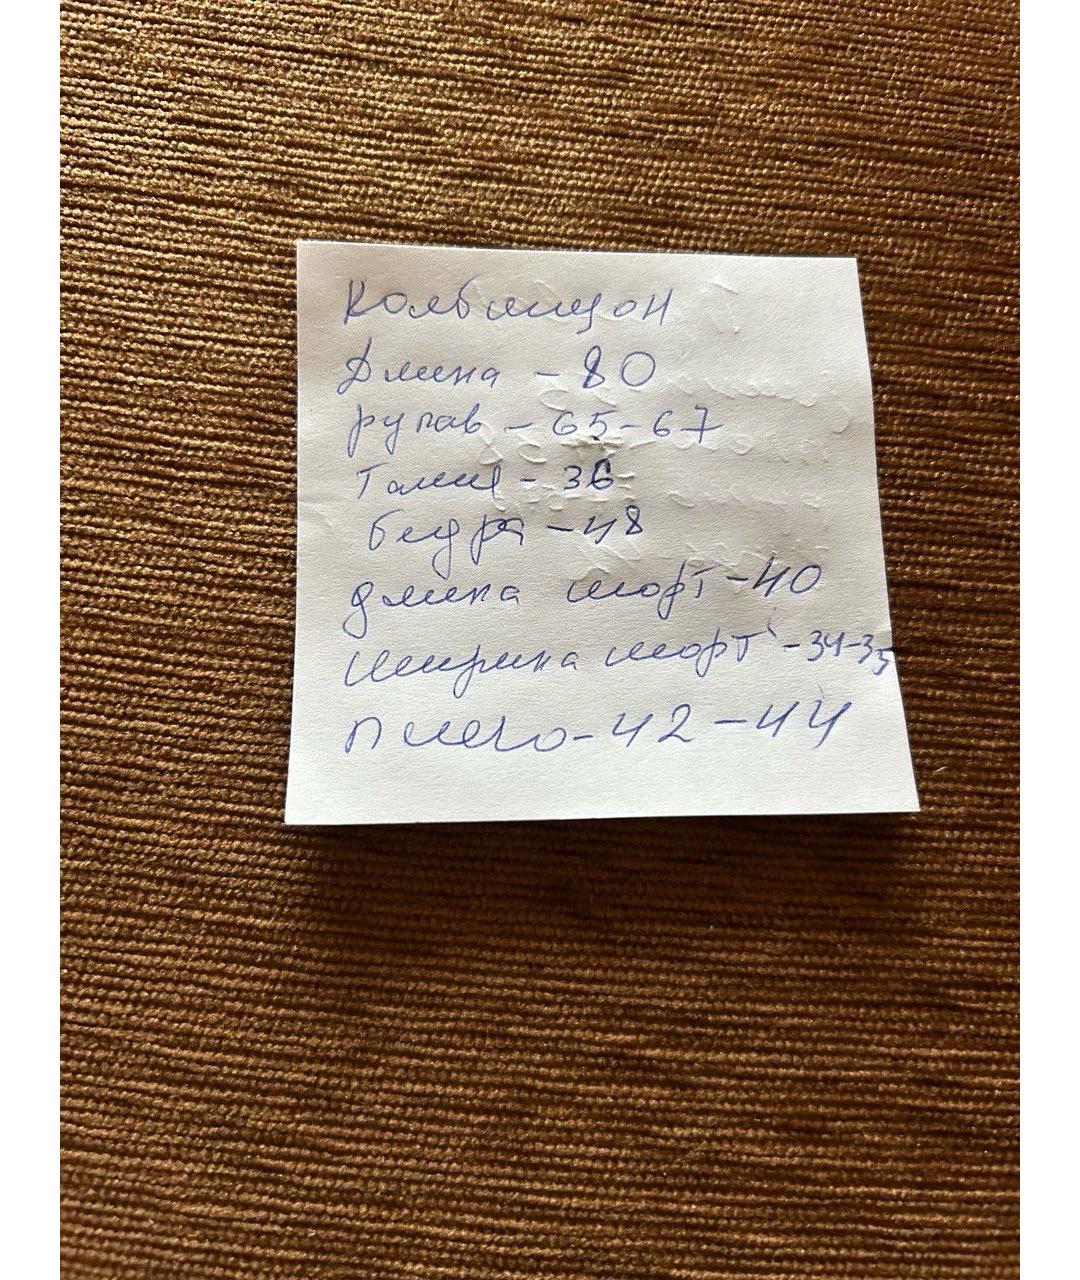 Комбинизон
Длина - 80
рукав - 65-67
Талия - 36
бедра - 48
длина шорт - 40
ширина шорт - 34-35
плечо - 42 - 44